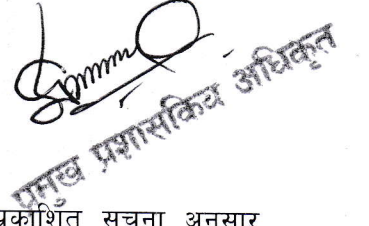 प्रमुख प्रशासकिय अधिकृत
प्रकाशित सूचना अनुसार